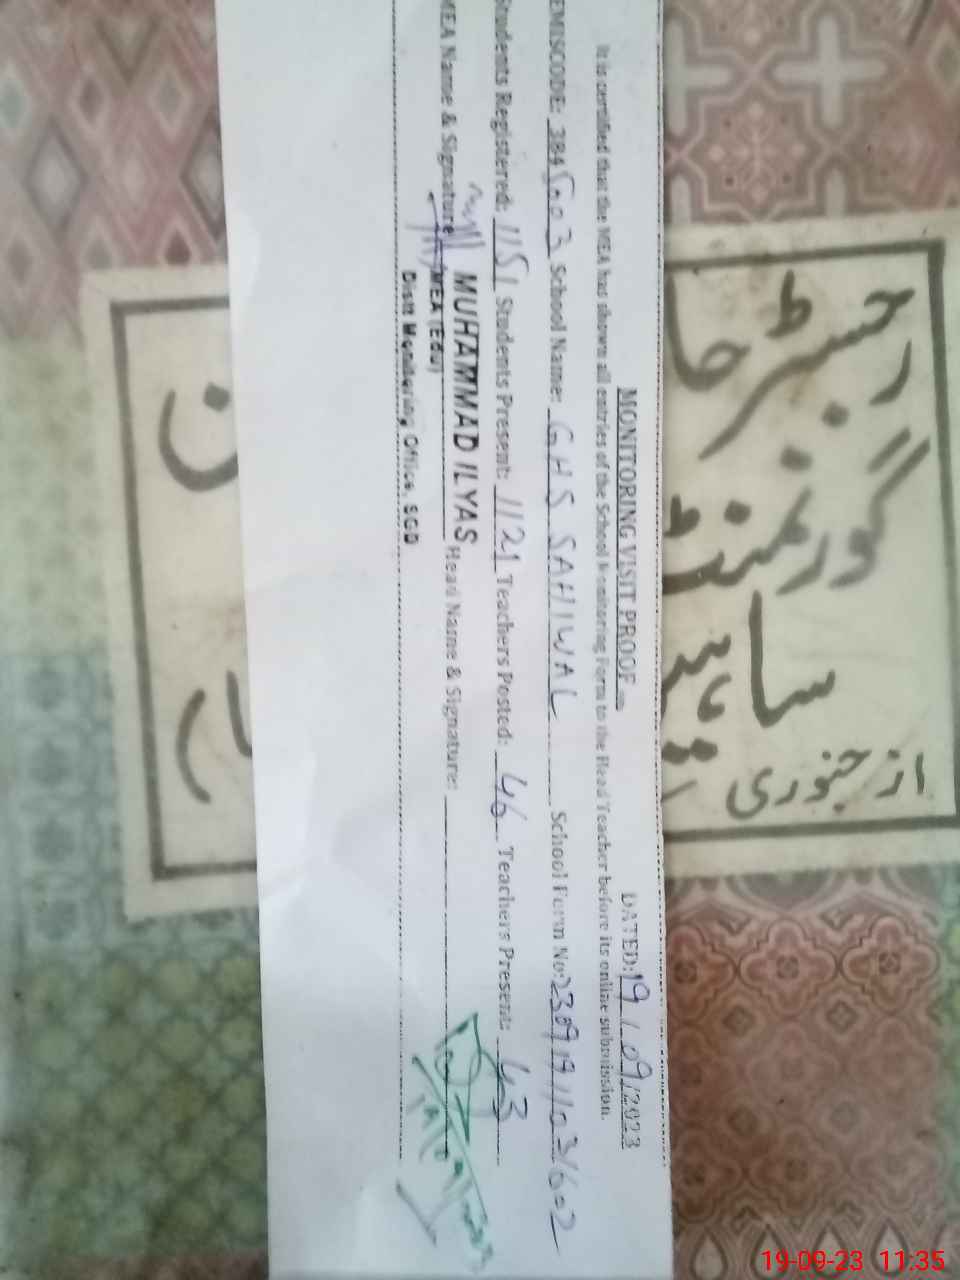 MONITORING VISIT PROOF DATED: 19/09/2023
It is certified that the MEA has shown all entries of the School Monitoring Form to the Head Teacher before its online submission.
EMISCODE: 384 School Name: GHS SAHIWAL School Form No:
Students Registered: 1151 Students Present: 1121 Teachers Posted: 46 Teachers Present: 43
MEA Name & Signature MUHAMMAD ILYAS Head Name & Signature:
MEA (Edu)
Distt Monitoring Office, SGD
رجسٹر
گورنمنٹ
از جنوری
19-09-23 11:35